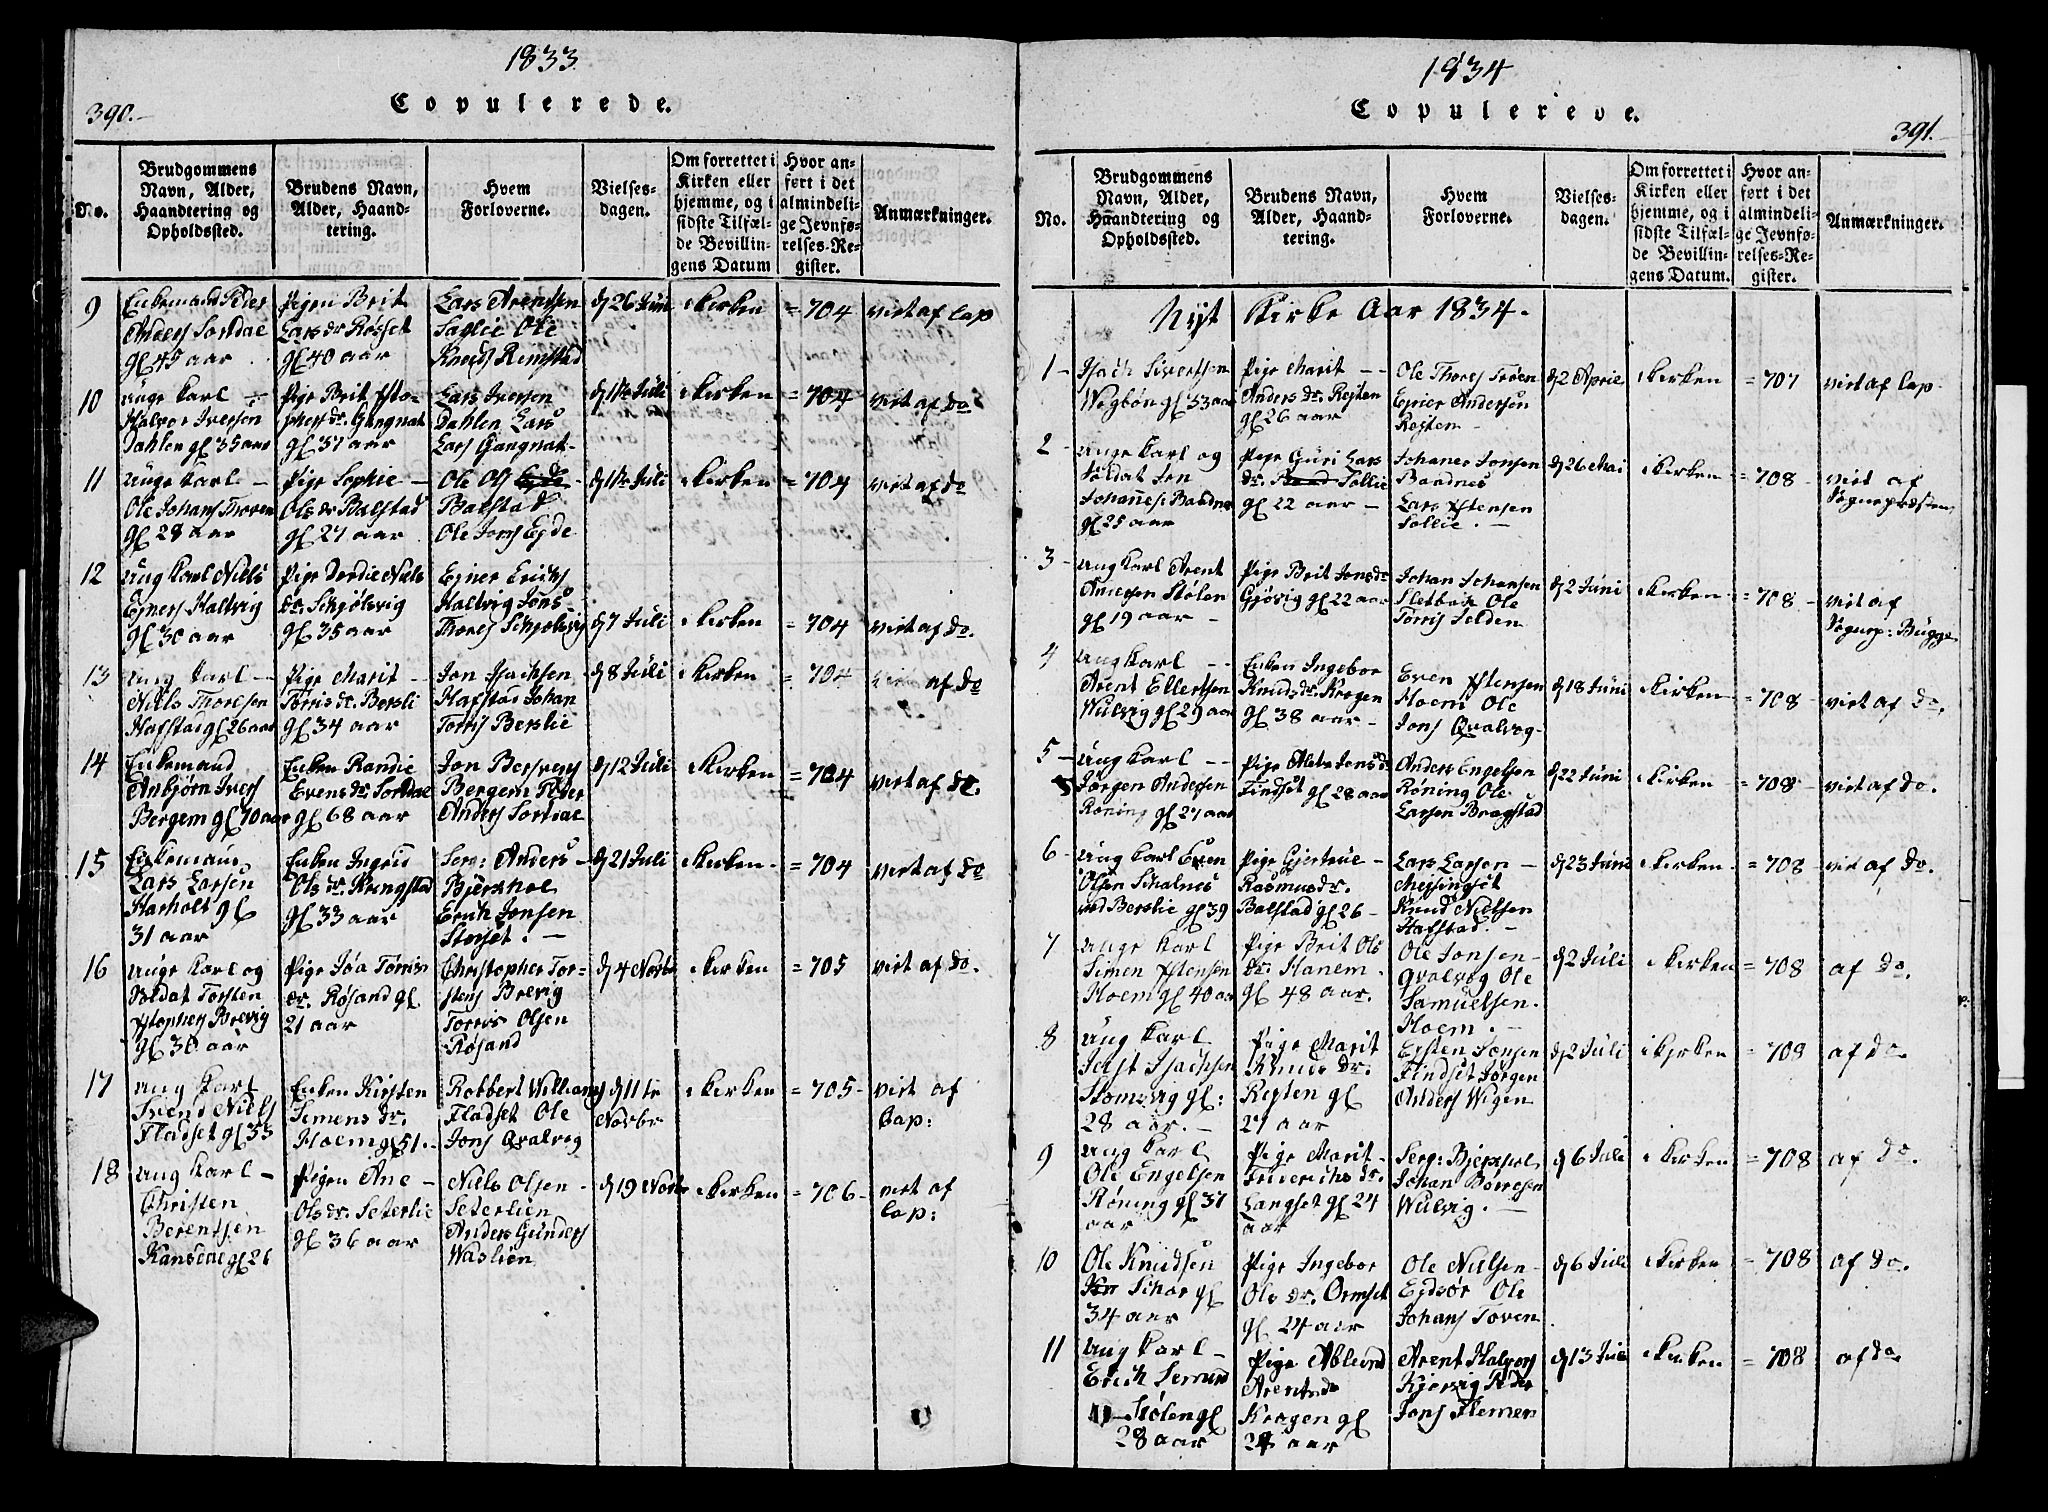 1833
390.-
Copulerede.
No.
Brudgommens
Navn, Alder,
Haandtering og
Opholdssted.
Brudens Navn,
Alder, Haand-
tering.
Hvem
Forloverne.
Vielses-
dagen.
Om forrettet i
Kirken eller
hjemme, og i
sidste Tilfæl-
de Bevillin-
gens Datum
Hvor an-
ført i det
almindeli-
ge Jevnfø-
relses-Re-
gister.
Anmærkninger.
9
Enkemand Peder
Anders Sordal
gl 45 aar
Pigen Brit
Lars dr Røsset
gl 40 aar
Lars Arentsen
Saglie Ole
Knuds Remstad
d 26 Juni
i Kirken
= 704
viet af Cap
10
Unge Karl
Halvor Iversen
Dahlen gl 35 aar
Pige Brit
dr. Gangnat
gl 37 aar
Lars Iversen
Dahlen Lars
Lars Gangnat
Juli
i Kirken
= 704
viet af do
11
Unge Karl
Ole Johans Thoven
gl 28 aar
Pige Sophie
Ols dr Balstad
gl 27 aar
Ole Ols
Balstad
Ole Jons Ejde
Juli
i Kirken
= 704
viet af do
12
Ung Karl Niels
Ejners Haltvig
gl 30 aar
Pige Dordie Niels
dr. Schjølsvig
gl 35 aar
Ejner Erichs
Haltvig Jons
Thores Schjolsvig
d 7 Juli
i Kirken
= 704
viet af do.
13
Ung Karl
Niels Thoresen
Hafstad gl 26 aar
Pige Marit
Tørris dr. Bersli
gl 34 aar
Jon Isachsen
Hafstad Johan
Torris Berslie
d 8 Juli
i Kirken
= 704
viet af do
14
Enkemand
Anbjørn Ivers
Bergem gl 70 aar
Enken Randie
Evens dr. Sordal
gl 68 aar
Jon Bersvens
Bergem Peder
Anders Sordal
d 12 Juli
i Kirken
= 704
viet af do.
15
Enkemand
Lars Larsen
Harholt gl
31 aar
Enken Ingrid
Ols dr. Kringstad
gl 33 aar
Serg: Anders
Bjerchol
Erich Jonsen
Storset. -
d 21 Juli
i Kirken.
= 704
viet af do
16
Unge Karl og
Soldat Torsten
Brevig
gl 30 aar
Pige Joa Tørris
dr. Røsand gl
21 aar
Christopher Tor=
stens Brevig
Torris Olsen
Røsand
d 4 Novbr
i Kirken
= 705
viet af do.
17
Ung Karl
Svend Niels
Fladset gl 33
Enken Kirsten
Simens dr.
Hoem gl 51.
Robbert Williams
Fladset Ole
Jons Qvalvog
d 11te
Novbr
i Kirken
= 705-
viet af
Cap:
18
Ung Karl -
Christen
Berentsen
Kansdal gl 26
Pigen Ane -
Ols dr. Seterlie
gl 36 aar
Niels Olsen
Seterlien
Anders Gunders
Waslien
d 19 Novbr
i Kirken
= 706-
viet af
Cap:
1834
391.
Copulerede.
No.
Brudgommens
Navn, Alder,
Haandtering og
Opholdssted.
Brudens Navn,
Alder, Haand-
tering.
Hvem
Forloverne.
Vielses-
dagen.
Om forrettet i
Kirken eller
hjemme, og i
sidste Tilfæl-
de Bevillin-
gens Datum.
Hvor an-
ført i det
almindeli-
ge Jevnfø-
relses-Re-
gister.
Anmærkninger.
Nyt Kirke Aar 1834.
1 -
Isach Sivertsen
Wogbøn gl 33 aar
Pige Marit - -
Anders dr. Rejten
gl 26 aar
Ole Thores Trøen
Ejner Andersen
Rejten -
d 2 April
i Kirken
= 707
viet af Cap.
2 -
Unge Karl og
Soldat Jon
Johannes: Baadnes
gl 25 aar
Pige Guri Lars
dr. Sollie
gl 22 aar -
Johanes Jonsen
Baadnes
Lars Estensen
Sollie. -
d 26 Mai
i Kirken
= 708 -
viet af
Sognepræsten
3 -
Ung Karl Arent
Andersen Stølen
gl 19 aar -
Pige Brit Jonsdr
Gjøvig gl 22 aar
Johan Johansen
Sletbak Ole
Torris Selden
d 2 Juni
i Kirken
= 708 -
viet af
Sognep: Bugge
4
Ung Karl - -
Arent Ellertsen
Wulvig gl 29 aar
Enken Ingebor
Knuds dr. Kragen
gl 38 aar -
Even Estensen
Hoem Ole
Jons Qvalvog-
d 18 Juni
i Kirken
= 708 -
viet af do.
5 -
Ung Karl - -
Jørgen Andersen
Røning gl 27 aar
Pige Alete Jens dr
Findset gl 28 aar
Anders Engelsen
Røning Ole
Larsen Bragstad
d 22 Juni
i Kirken
= 708 -
viet af do.
6 -
Ung Karl Even
Olsen Schalnes
ved Berslie gl 39
Pige Gjertrue -
Rasmus dr.
Balstad gl 26 -
Lars Larsen -
Meisingset
Knud Nielsen
Hafstad. -
d 23 Juni
i Kirken
= 708 -
viet af do.
7
Unge Karl
Simen Estensen
Hoem gl 40 aar
Pige Brit Ols
dr. Hanem.
gl 48 aar.
Ole Jonsen -
Qvalvog Ole
Samuelsen.
Hoem. -
d 2 Juli
i Kirken
= 708 -
af do.
8
Ung Karl
Isachsen
Stomsvig gl:
28 aar. -
Pige Marit
Knuds dr.
Rejten gl
27 aar
Ersten Jonsen
Findset Jørgen
Anders Wigen
d 2 Juli
i Kjrken
= 708
af do.
9
Ung Karl
Ole Engelsen
Røning gl 37
aar
Pige Marit-
Friderichs dr.
Langset gl 24
aar
Serg: Bjerchol
Johan Borresen
Wulvig. -
d 6 Juli
i Kirken
= 708
af do.
10
Ole Knudsen
Schar gl
34 aar
Pige Ingebor
Ols dr. Ormset
gl 24 aar
Ole Nielsen
Ejdsør Ole
Johans Toven
d 6 Juli
i Kirken
= 708
af do.
11
Ung Karl -
Erich Semund
Stølen gl
28 aar
Pige Ablund
Arentsdr
Kragen gl
24 aar
Arent Halvors
Kjorsvig Peder
Jons Flemen
d 13 Juli
i Kirken
= 708
af do.